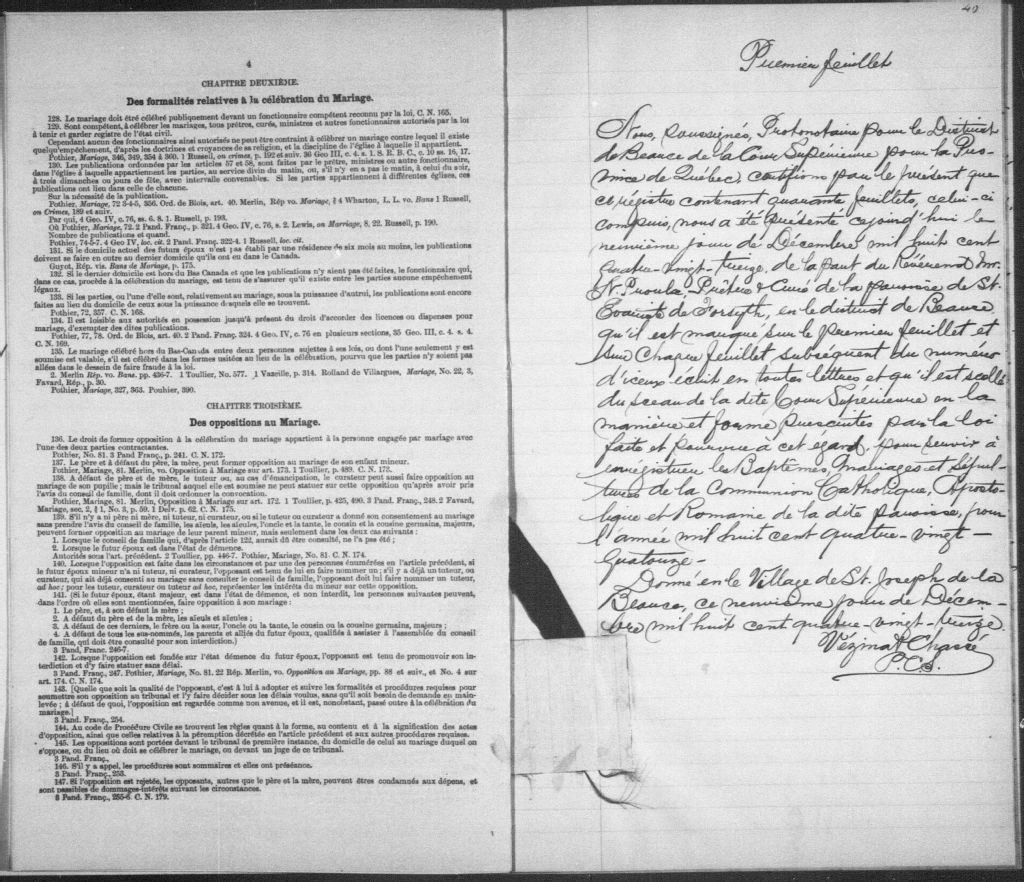 4
CHAPITRE DEUXIÈME.
Des formalités relatives à la célébration du Mariage.
128. Le mariage doit être célébré publiquement devant un fonctionnaire compétent reconnu par la loi, C. N. 165.
129. Sont compétent, à célébrer les mariages, tous prêtres, curés, ministres et autres fonctionnaires autorisés par la loi
à tenir et garder registre de l'état civil.
Cependant aucun des fonctionnaires ainsi autorisés ne peut être contraint à célébrer un mariage contre lequel il existe
quelqu'empêchement, d'après les doctrines et croyances de sa religion, et la discipline de l'église à laquelle il appartient.
Pothier, Mariage, 346, 349, 354 à 360. 1 Russell, on crimes, p. 192 et suiv. 36 Geo III, c. 4. s. 1. S. R. B. C., c. 10 ss. 16, 17.
130. Les publications ordonnées par les articles 57 et 58, sont faites par le prêtre, ministres ou autre fonctionnaire,
dans l'église à laquelle appartiennent les parties, au service divin du matin, ou, s'il n'y en a pas le matin, à celui du soir,
à trois dimanches ou jours de fête, avec intervalle convenables. Si les parties appartiennent à différentes églises, ces
publications ont lieu dans celle de chacune.
Sur la nécessité de la publication.
Pothier, Mariage, 72 3-4-5, 356. Ord. de Blois, art. 40. Merlin, Rép vo. Mariage, § 4 Wharton, L. L. vo. Bans 1 Russell,
on Crimes, 189 et suiv.
Par qui, 4 Geo. IV, c. 76, ss. 6. 8. 1. Russell, p. 193.
Où Pothier, Mariage, 72. 2 Pand. Franç., p. 321. 4 Geo. IV, c. 76, s. 2. Lewis, on Marriage, 8. 22. Russell, p. 190.
Nombre de publications et quand.
Pothier, 74-5-7. 4 Geo IV, loc. cit. 2 Pand. Franç. 322-4. 1 Russell, loc. cit.
131. Si le domicile actuel des futurs époux n'est pas établi par une résidence de six mois au moins, les publications
doivent se faire en outre au dernier domicile qu'ils ont eu dans le Canada.
Guyot, Rép. vis. Bans de Mariage, p. 175.
132. Si le dernier domicile est hors du Bas Canada et que les publications n'y aient pas été faites, le fonctionnaire qui,
dans ce cas, procède à la célébration du mariage, est tenu de s'assurer qu'il existe entre les parties aucune empêchement
légaux.
133. Si les parties, ou l'une d'elle sont, relativement au mariage, sous la puissance d'autrui, les publications sont encore
faites au lieu du domicile de ceux sous la puissance desquels elle se trouvent.
Pothier, 72, 357. C. N. 168.
134. Il est loisible aux autorités en possession jusqu'à présent du droit d'accorder des licences ou dispenses pour
mariage, d'exempter des dites publications.
Pothier, 77, 78. Ord. de Blois, art. 40. 2 Pand. Franç. 324. 4 Geo. IV, c. 76 en plusieurs sections, 35 Geo. III, c. 4. s. 4.
C. N. 169.
135. Le mariage célébré hors du Bas-Canada entre deux personnes sujettes à ses lois, ou dont l'une seulement y est
soumise est valable, s'il est célébré dans les formes usitées au lieu de la célébration, pourvu que les parties n'y soient pas
allées dans le dessein de faire fraude à la loi.
2. Merlin Rép. vo. Bans. pp. 436-7. 1 Toullier, No. 577. 1 Vazeille, p. 314. Rolland de Villargues, Mariage, No. 22, 3,
Favard, Rép., p. 30.
Pothier, Mariage, 327, 363. Pouhier, 390.
CHAPITRE TROISIÈME.
Des oppositions au Mariage.
136. Le droit de former opposition à la célébration du mariage appartient à la personne engagée par mariage avec
l'une des deux parties contractantes.
Pothier, No. 81. 3 Pand Franç., p. 241. C. N. 172.
137. Le père et à défaut du père, la mère, peut former opposition au mariage de son enfant mineur.
Pothier, Mariage, 81. Merlin, vo. Opposition à Mariage sur art. 173. 1 Toullier, p. 489. C. N. 173.
138. A défaut de père et de mère, le tuteur ou, au cas d'émancipation, le curateur peut aussi faire opposition au
mariage de son pupille ; mais le tribunal auquel elle est soumise ne peut statuer sur cette opposition qu'après avoir pris
l'avis du conseil de famille, dont il doit ordonner la convocation.
Pothier, Mariage, 81. Merlin, Opposition à Mariage sur art. 172. 1 Toullier, p. 425, 490. 3 Pand. Franç., 248. 2 Favard,
Mariage, sec. 2, § 1, No. 3, p. 59. 1 Delv. p. 62. C. N. 175.
139. S'il n'y a ni père ni mère, ni tuteur, ni curateur, ou si le tuteur ou curateur a donné son consentement au mariage
sans prendre l'avis du conseil de famille, les aïeuls, les aïeules, l'oncle et la tante, le cousin et la cousine germains, majeurs,
peuvent former opposition au mariage de leur parent mineur, mais seulement dans les deux cas suivants :
1. Lorsque le conseil de famille qui, d'après l'article 122, aurait dû être consulté, ne l'a pas été ;
2. Lorsque le futur époux est dans l'état de démence.
Autorités sous l'art. précédent. 2 Toullier, pp. 446-7. Pothier, Mariage, No. 81. C. N. 174.
140. Lorsque l'opposition est faite dans les circonstances et par une des personnes énumérées en l'article précédent, si
le futur époux mineur n'a ni tuteur, ni curateur, l'opposant est tenu de lui en faire nommer un ; s'il y a déjà un tuteur, ou
curateur, qui ait déjà consenti au mariage sans consulter le conseil de famille, l'opposant doit lui faire nommer un tuteur,
ad hoc : pour les tuteur, curateur ou tuteur ad hoc, représenter les intérêts du mineur sur cette opposition.
141. (Si le futur époux, étant majeur, est dans l'état de démence, et non interdit, les personnes suivantes peuvent,
dans l'ordre où elles sont mentionnées, faire opposition à son mariage :
1. Le père, et, à son défaut la mère ;
2. A défaut du père et de la mère, les aïeuls et aïeules ;
3. A défaut de ces derniers, le frère ou la sœur, l'oncle ou la tante, le cousin ou la cousine germains, majeurs ;
4. A défaut de tous les sus-nommés, les parents et alliés du futur époux, qualifiés à assister à l'assemblée du conseil
de famille, qui doit être consulté pour son interdiction.)
3 Pand, Franc. 246-7.
142. Lorsque l'opposition est fondée sur l'état démence du futur époux, l'opposant est tenu de promouvoir son in-
terdiction et d'y faire statuer sans délai.
3 Pand. Franç., 247. Pothier, Mariage, No. 81. 22 Rép. Merlin, vo. Opposition au Mariage, pp. 88 et suiv., et No. 4 sur
art. 174. C. N. 174.
143. [Quelque soit la qualité de l'opposant, c'est à lui à adopter et suivre les formalités et procédures requises pour
soumettre son opposition au tribunal et l'y faire décider sous les délais voulus, sans qu'il soit besoin de demande en main-
levée ; à défaut de quoi, l'opposition est regardée comme non avenue, et il est, nonobstant, passé outre à la célébration du
mariage.]
3 Pand. Franç., 254.
144. Au code de Procédure Civile se trouvent les règles quant à la forme, au contenu et à la signification des actes
d'opposition, ainsi que celles relatives à la péremption décrétée en l'article précédent et aux autres procédures requises.
145. Les oppositions sont portées devant le tribunal de première instance, du domicile de celui au mariage duquel on
s'oppose, ou du lieu où doit se célébrer le mariage, ou devant un juge de ce tribunal.
3 Pand. Franç.,
146. S'il y a appel, les procédures sont sommaires et elles ont préséance.
3 Pand. Franç., 253.
147. Si l'opposition est rejetée, les opposants, autres que le père et la mère, peuvent être condamnés aux dépens, et
sont passibles de dommages-intérêts suivant les circonstances.
3 Pand. Franç., 255-6. C. N. 179.
40
Premier feuillet
Nous, soussignés, Protonotaire pour le District
de Beauce de la Cour Supérieure pour la Pro-
vince de Québec, certifions par le présent que
ce régistre contenant quarante feuillets, celui-ci
compris, nous a été présenté cejourd'hui le
neuvième jour de Décembre mil huit cent
quatre-vingt-treize, de la part du Révérend Mr.
N. Proulx, Prêtre & Curé de la paroisse de St.
Evariste de Forsyth, en le district de Beauce
qu'il est marqué sur le premier feuillet et
sur chaque feuillet subséquent du numéro
d'iceux écrit en toutes lettres et qu'il est scellé
du sceau de la dite Cour Supérieure en la
manière et forme prescrites par la loi
faite et pourvue à cet égard, pour servir à
enregistrer les Baptêmes, mariages et Sépul-
tures de la Communion Catholique, Aposto-
lique et Romaine de la dite paroisse, pour
l'année mil huit cent quatre-vingt-
quatorze-
Donné en le Village de St. Joseph de la
Beauce, ce neuvième jour de Décem-
bre mil huit cent quatre-vingt-treize
Vézina & Chassé
P.C.S.